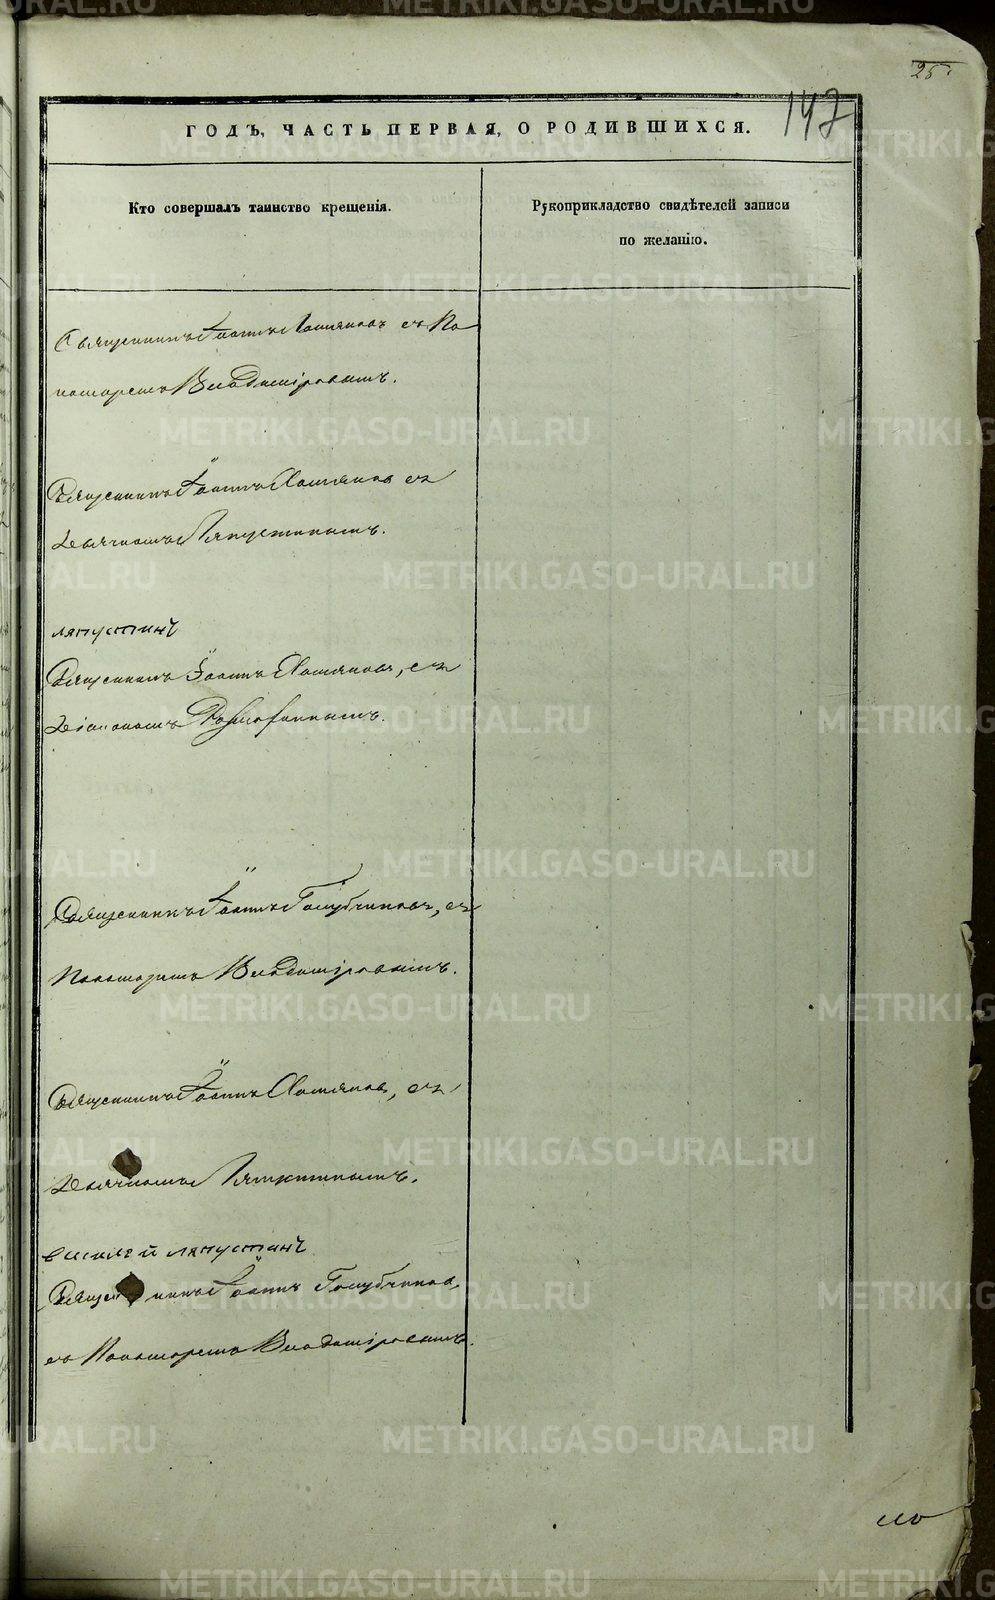 25
147
ГОДЪ, ЧАСТЬ ПЕРВАЯ, О РОДИВШИХСЯ.
Кто совершалъ таинство крещенія.
Рукоприкладство свидѣтелей записи
по желанію.
Священникъ Іоаннъ Хомяковъ съ По
номаремъ Владиміровымъ.
Священникъ Іоаннъ Хомяковъ съ
Дьячкомъ Ляпустинымъ.
ляпустинъ
Священникъ Іоаннъ Хомяковъ, съ
Діакономъ
Священникъ Іоаннъ Голубчиковъ, съ
Пономаремъ Владиміровымъ.
Священникъ Іоаннъ Хомяковъ, съ
Дьячкомъ Ляпустинымъ.
василей ляпустинъ
Священникъ Іоаннъ Голубчиковъ,
съ Пономаремъ Владиміровымъ.
METRIKI.GASO-URAL.RU